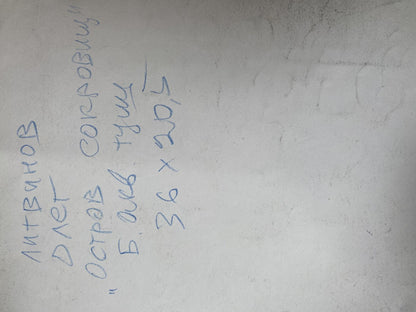 ЛИТВИНОВ
ОЛЕГ
"ОСТРОВ СОКРОВИЩ"
Б. акв. тушь
36 x 20,5